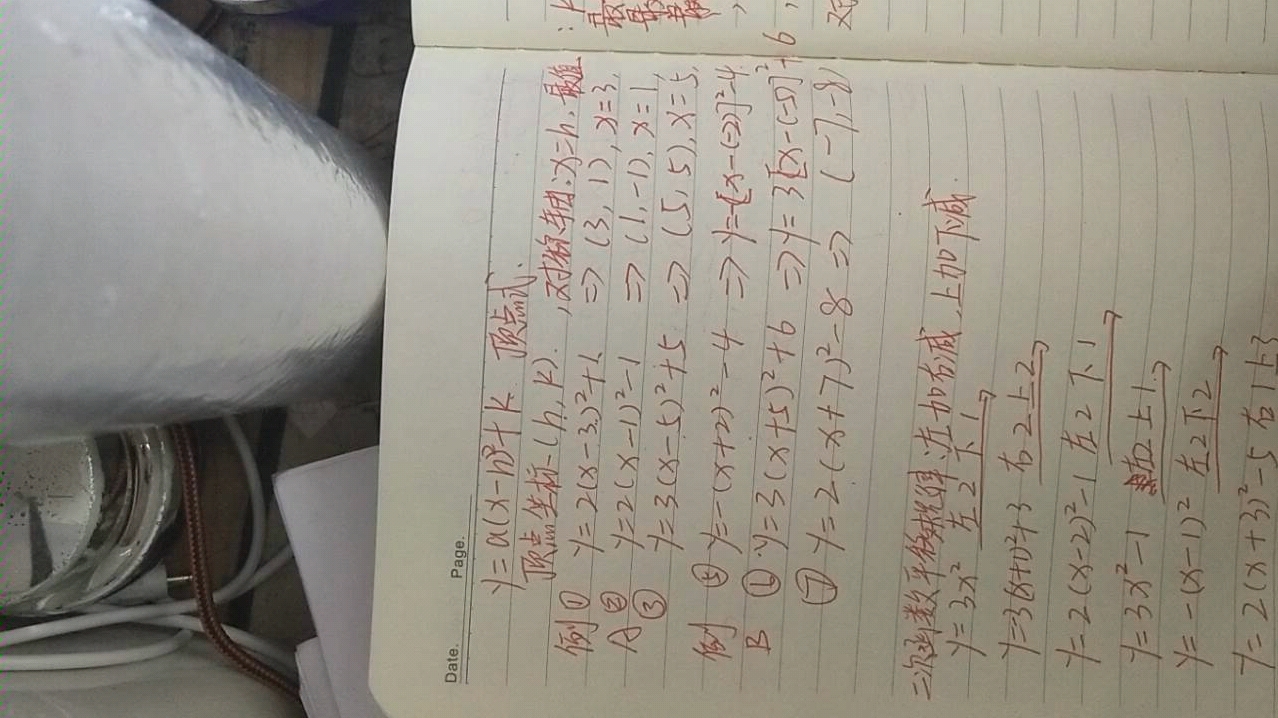 Date. Page.
y=a(x-h)²+k 顶点式.
顶点坐标(h,k). ,对称轴:x=h,最值
例① y=2(x-3)²+1 => (3,1),x=3,
A ② y=2(x-1)²-1 => (1,-1),x=1
③ y=3(x-5)²+5 => (5,5),x=5,
例 ⑤ y=-(x+2)²-4 => y=-[x-(-2)]²-4
B ⑥ y=3(x+5)²+6 => y=3[x-(-5)]²+6
⑦ y=2(x+7)²-8 => (-7,-8)
二次函数平移规律:左加右减,上加下减.
y=3x² 左2下1
y=3(x+1)²+3 右2上2
y=2(x-2)²-1 左2下1
y=3x²-1 右2上1
y=-(x-1)² 左2下2
y=2(x+3)²-5 右1上3